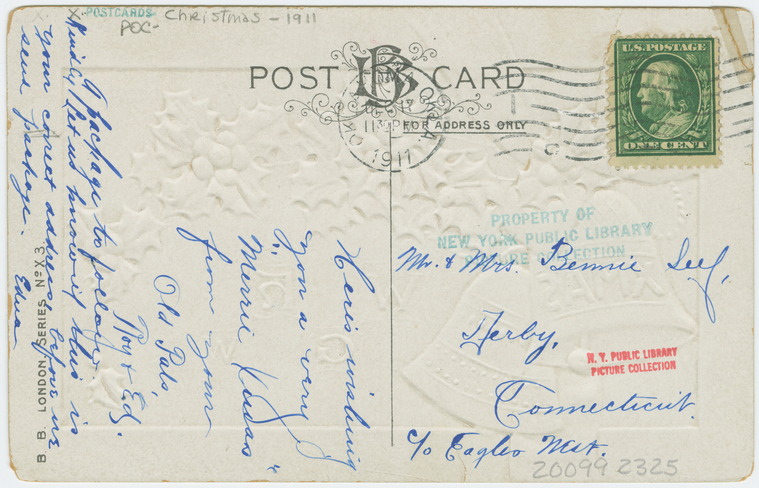 POSTCARDS - Christmas - 1911
POC-
POST CARD
BB
FOR ADDRESS ONLY
1130P
1911
OKLA.
U.S. POSTAGE
ONE CENT
PROPERTY OF
NEW YORK PUBLIC LIBRARY
PICTURE COLLECTION
Mr. & Mrs. Bennie
Derby,
Connecticut.
c/o Eagles
N. Y. PUBLIC LIBRARY
PICTURE COLLECTION
20099 2325
Heris wishing
you a very
"Merrie Xmas"
from your
Old Pals,
Roy & Ed.
A package to follow.
Kindly let us know if this is
your correct address, before we
send package.
Edna
B B. LONDON SERIES No X 3.